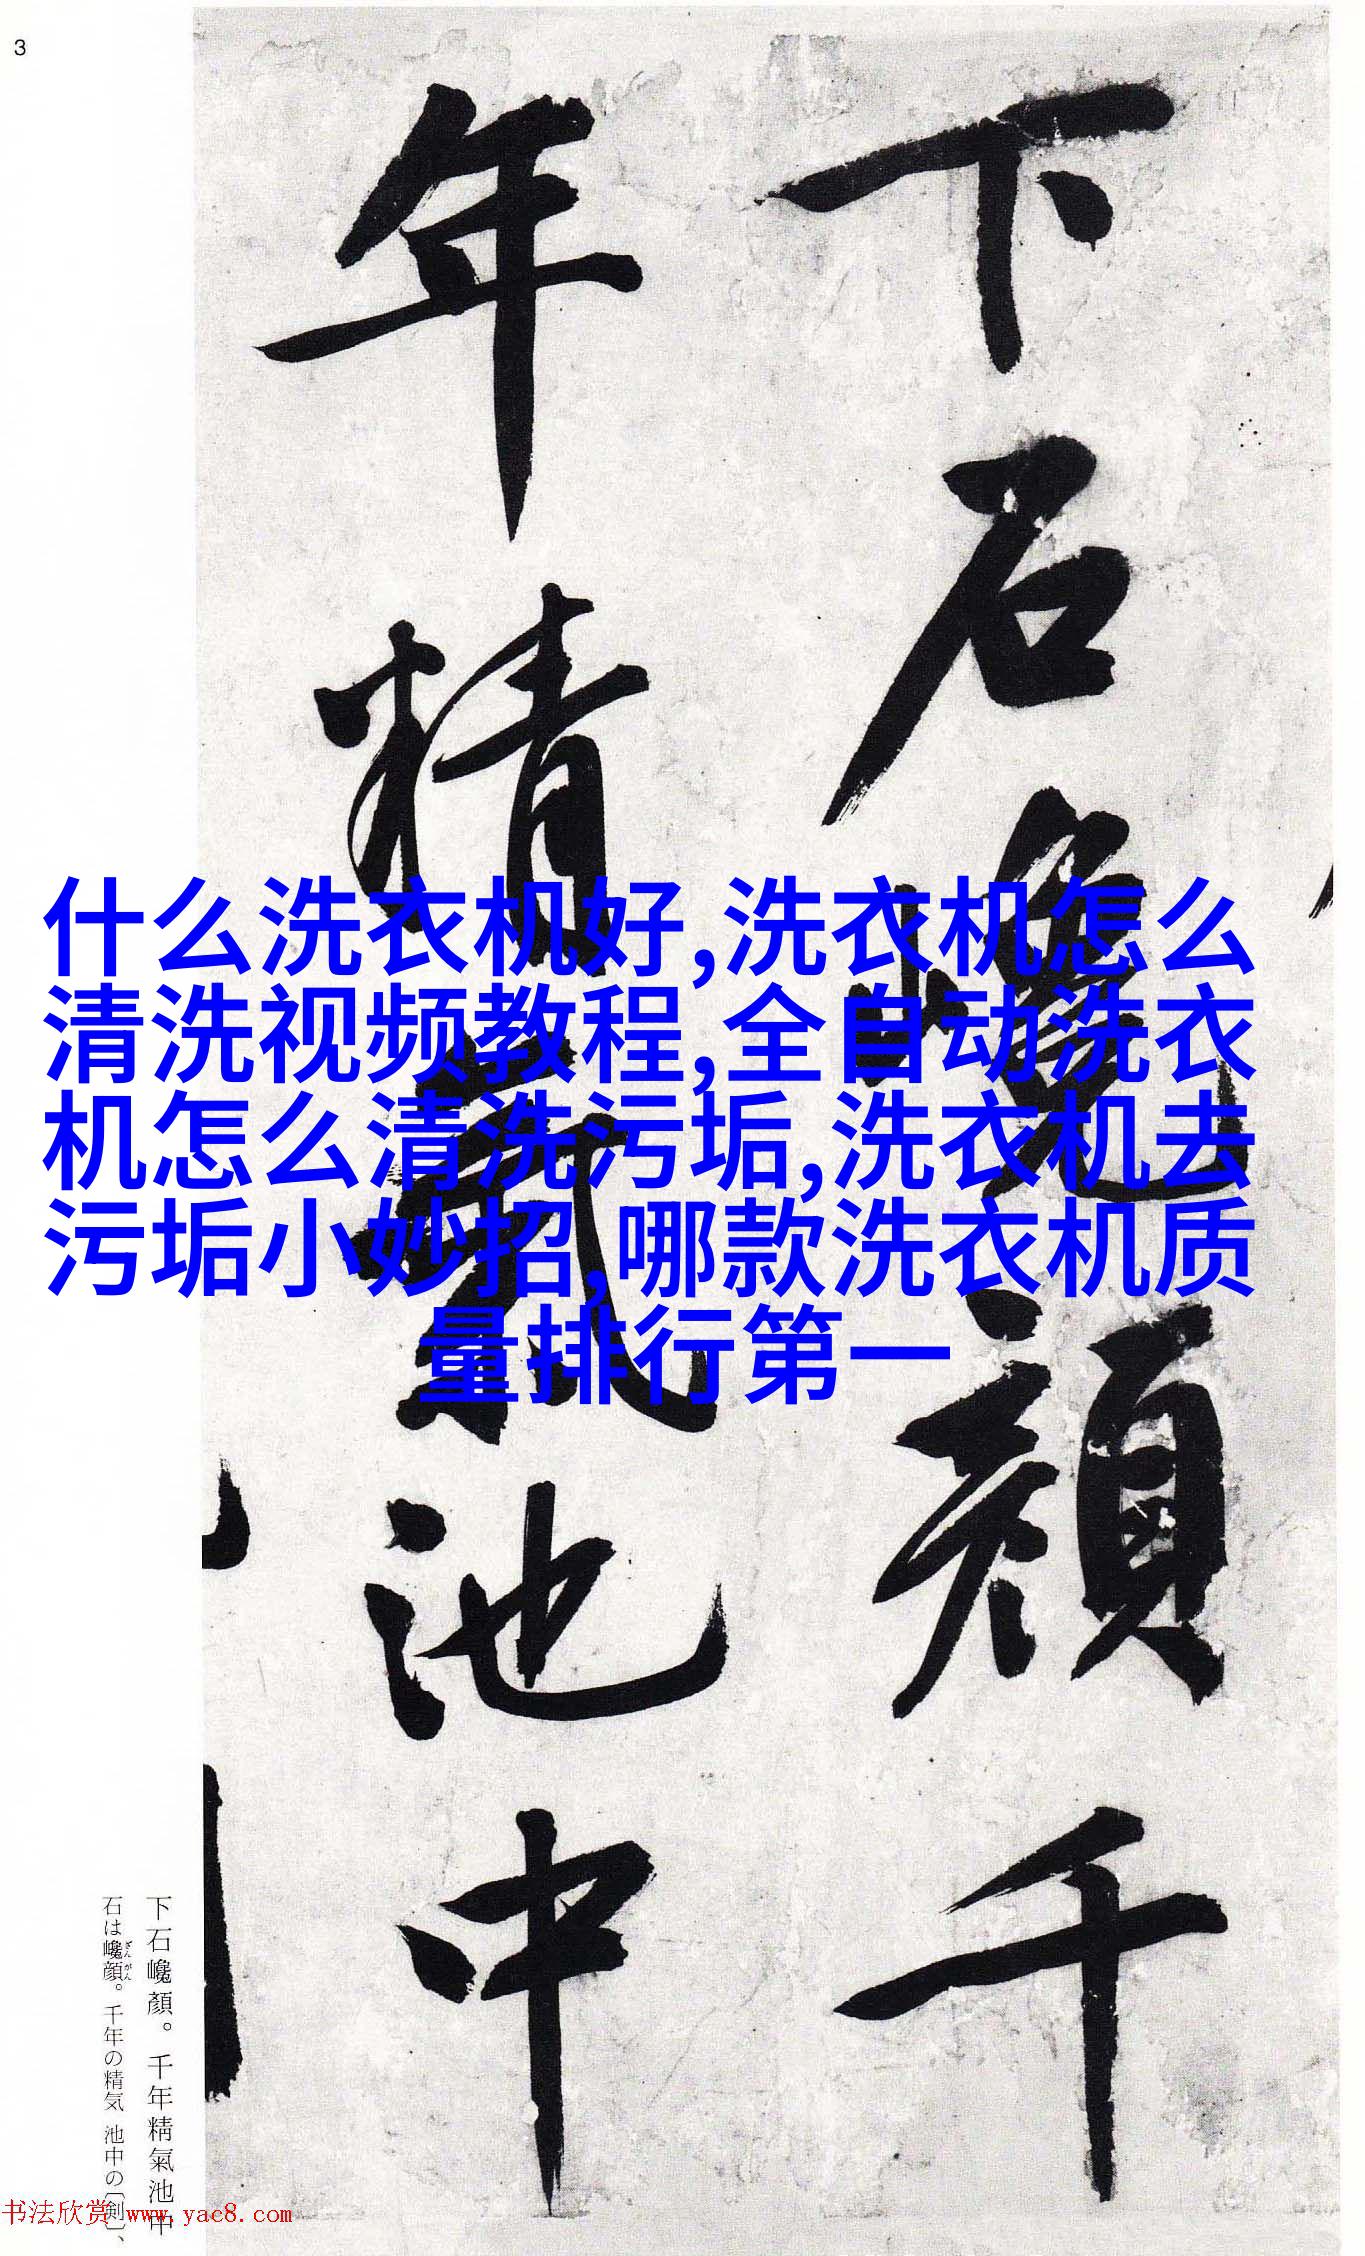 3
下石巉顔千
年精氣池中
什么洗衣机好,洗衣机怎么
清洗视频教程,全自动洗衣
机怎么清洗污垢,洗衣机去
污垢小妙招,哪款洗衣机质
量排行第一
下石巉顏。千年精氣池中
石は巉顔。千年の精気 池中の〔剣〕、
ざんがん
书法欣赏 www.yac8.com